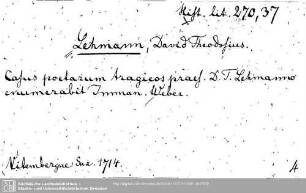 Hist. lit. 270,37
Lehmann, David Theodosius.
Casus poetarum tragicos praes. D. T. Lehmanno
enumerabit Imman. Weber.
Vitembergae Sax. 1714.
4
Sächsische Landesbibliothek -
Staats- und Universitätsbibliothek Dresden